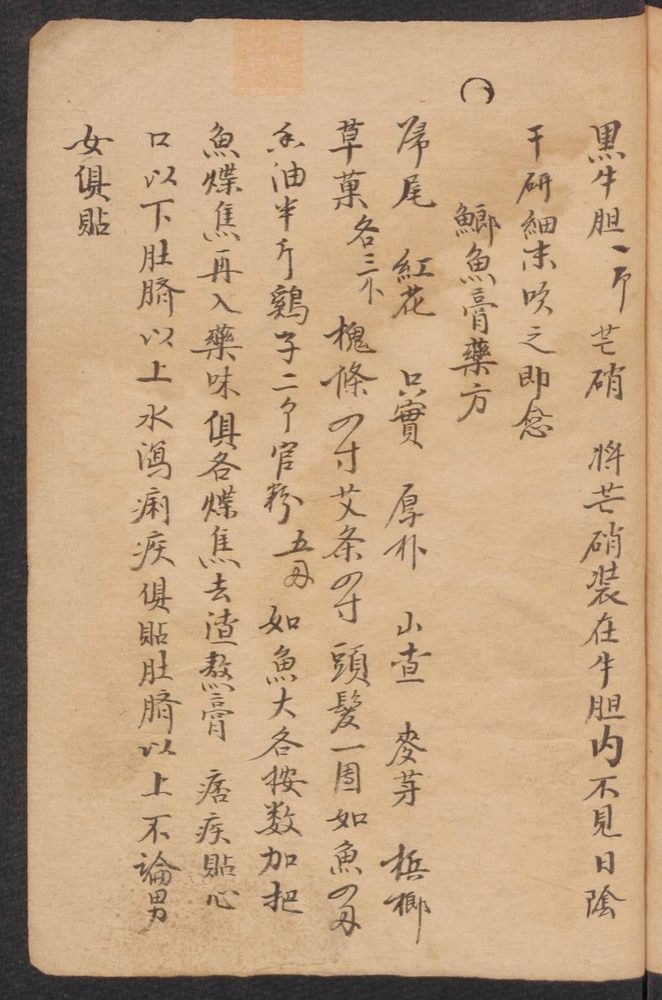 黒牛胆一个 芒硝 将芒硝装在牛胆内不見日陰
干研細末吹之即念
鯽魚膏藥方
歸尾 紅花 只實 厚朴 山查 麥芽 梹榔
草菓各三个 槐條四寸艾条四寸頭髮一團如魚四刄
香油半斤鷄子二个官粉五刄 如魚大各按数加把
魚煠焦再入藥味俱各煠焦去渣熬膏 痞疾貼心
口以下肚臍以上水瀉痢疾俱貼肚臍以上不論男
女俱貼